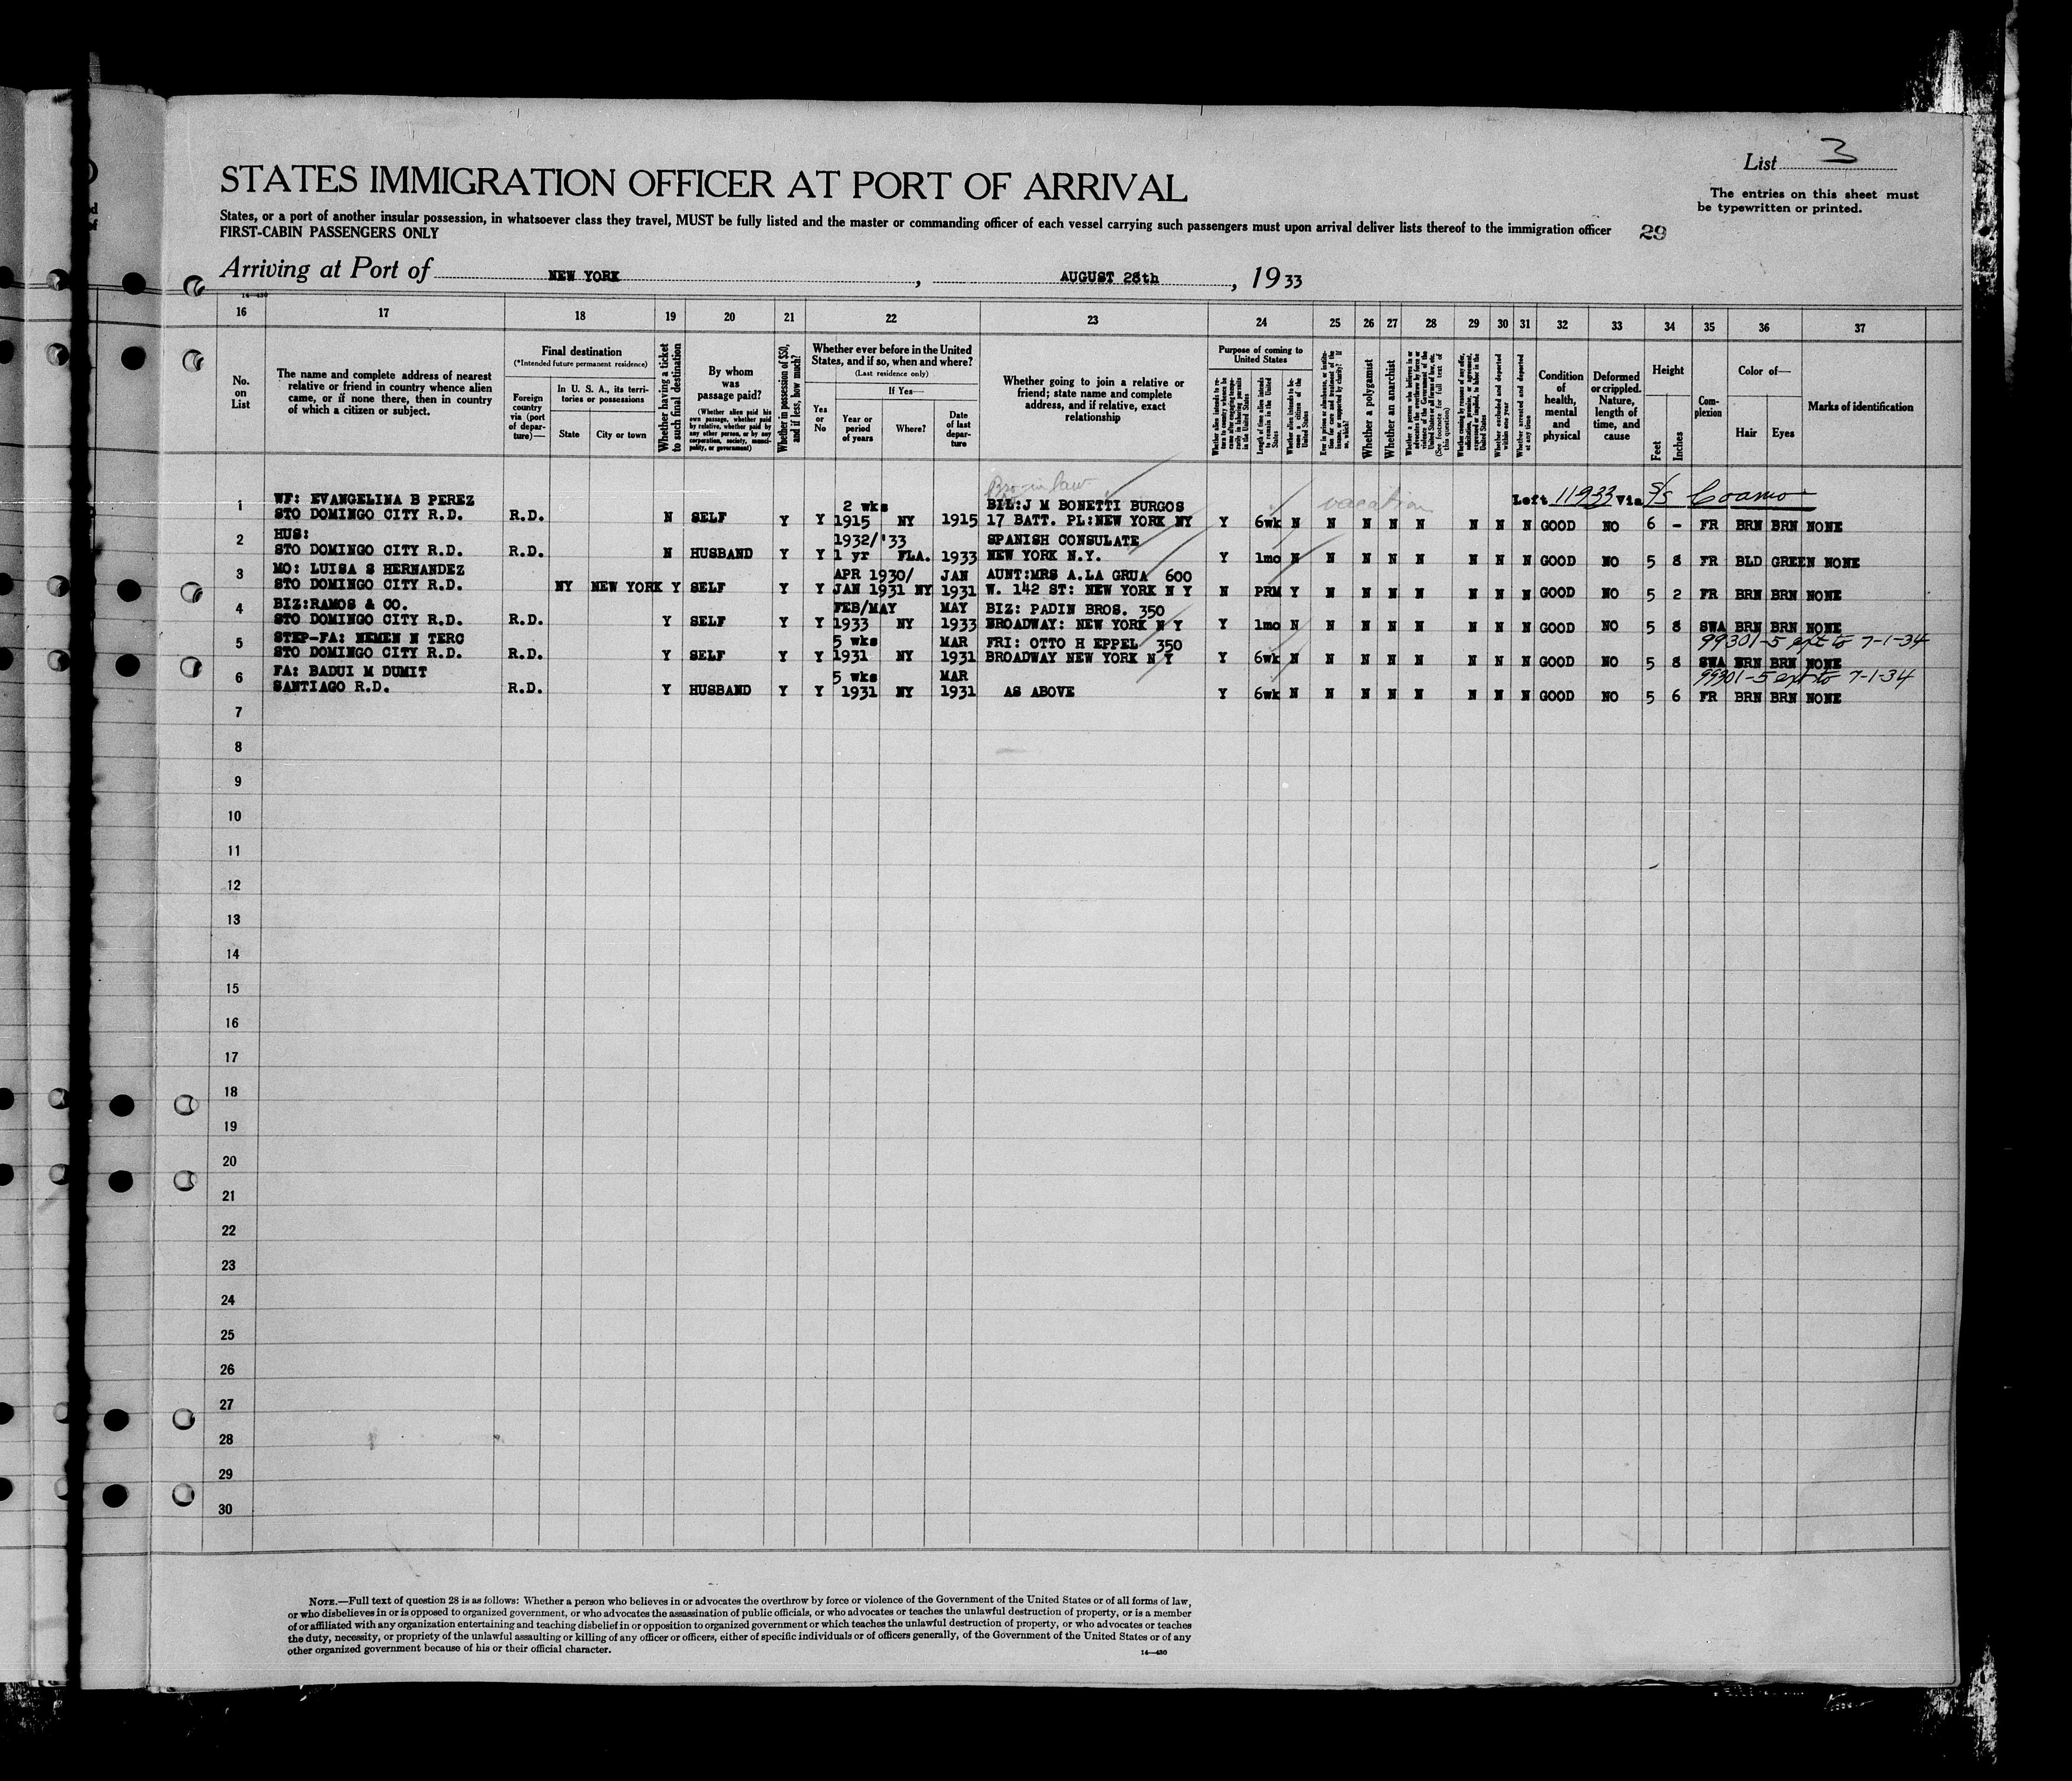 List 3
STATES IMMIGRATION OFFICER AT PORT OF ARRIVAL
The entries on this sheet must
be typewritten or printed.
States, or a port of another insular possession, in whatsoever class they travel, MUST be fully listed and the master or commanding officer of each vessel carrying such passengers must upon arrival deliver lists thereof to the immigration officer
FIRST-CABIN PASSENGERS ONLY
29
Arriving at Port of NEW YORK, AUGUST 28th, 1933
14—430
16 17 18 19 20 21 22 23 24 25 26 27 28 29 30 31 32 33 34 35 36 37
No. on List
The name and complete address of nearest relative or friend in country whence alien came, or if none there, then in country of which a citizen or subject.
Final destination
(*Intended future permanent residence)
Foreign country via (port of departure)—
In U. S. A., its territories or possessions
State
City or town
Whether having a ticket to such final destination
By whom was passage paid?
(Whether alien paid his own passage, whether paid by relative, whether paid by any other person, or by any corporation, society, municipality, or government)
Whether in possession of $50, and if less, how much?
Whether ever before in the United States, and if so, when and where?
(Last residence only)
Yes or No
If Yes—
Year or period of years
Where?
Date of last departure
Whether going to join a relative or friend; state name and complete address, and if relative, exact relationship
Purpose of coming to United States
Length of time alien intends to remain in the United States
Whether alien intends to become a citizen of the United States
Whether a polygamist
Whether an anarchist
(See footnote for full text of this question)
Whether excluded and deported within one year
Whether arrested and deported at any time
Condition of health, mental and physical
Deformed or crippled. Nature, length of time, and cause
Height
Feet
Inches
Complexion
Color of—
Hair
Eyes
Marks of identification
Bro in law
vacation
Left 11933 Via S/s Coamo
1 WF: EVANGELINA B PEREZ 2 wks BIL:J M BONETTI BURGOS
STO DOMINGO CITY R.D. R.D. N SELF Y Y 1915 NY 1915 17 BATT. PL:NEW YORK NY Y 6wk N N N N N N N N GOOD NO 6 - FR BRN BRN NONE
2 HUS: 1932/'33 SPANISH CONSULATE
STO DOMINGO CITY R.D. R.D. N HUSBAND Y Y 1 yr FLA. 1933 NEW YORK N.Y. Y 1mo N N N N N N N N GOOD NO 5 8 FR BLD GREEN NONE
3 MO: LUISA S HERNANDEZ APR 1930/ JAN AUNT:MRS A.LA GRUA 600
STO DOMINGO CITY R.D. NY NEW YORK Y SELF Y Y JAN 1931 NY 1931 W. 142 ST: NEW YORK N Y N PRM Y N N N N N N N GOOD NO 5 2 FR BRN BRN NONE
4 BIZ:RAMOS & CO. FEB/MAY MAY BIZ: PADIN BROS. 350
STO DOMINGO CITY R.D. R.D. Y SELF Y Y 1933 NY 1933 BROADWAY: NEW YORK N Y Y 1mo N N N N N N N N GOOD NO 5 8 SWA BRN BRN NONE
5 STEP-FA: NEMEN N TERC 5 wks MAR FRI: OTTO H EPPEL 350 99301-5 ext to 7-1-34
STO DOMINGO CITY R.D. R.D. Y SELF Y Y 1931 NY 1931 BROADWAY NEW YORK N Y Y 6wk N N N N N N N N GOOD NO 5 8 SWA BRN BRN NONE
6 FA: BADUI M DUMIT 5 wks MAR 99301-5 ext to 7-1-34
SANTIAGO R.D. R.D. Y HUSBAND Y Y 1931 NY 1931 AS ABOVE Y 6wk N N N N N N N N GOOD NO 5 6 FR BRN BRN NONE
7
8
9
10
11
12
13
14
15
16
17
18
19
20
21
22
23
24
25
26
27
28
29
30
NOTE.—Full text of question 28 is as follows: Whether a person who believes in or advocates the overthrow by force or violence of the Government of the United States or of all forms of law,
or who disbelieves in or is opposed to organized government, or who advocates the assassination of public officials, or who advocates or teaches the unlawful destruction of property, or is a member
of or affiliated with any organization entertaining and teaching disbelief in or opposition to organized government or which teaches the unlawful destruction of property, or who advocates or teaches
the duty, necessity, or propriety of the unlawful assaulting or killing of any officer or officers, either of specific individuals or of officers generally, of the Government of the United States or of any
other organized government because of his or their official character.
14—430